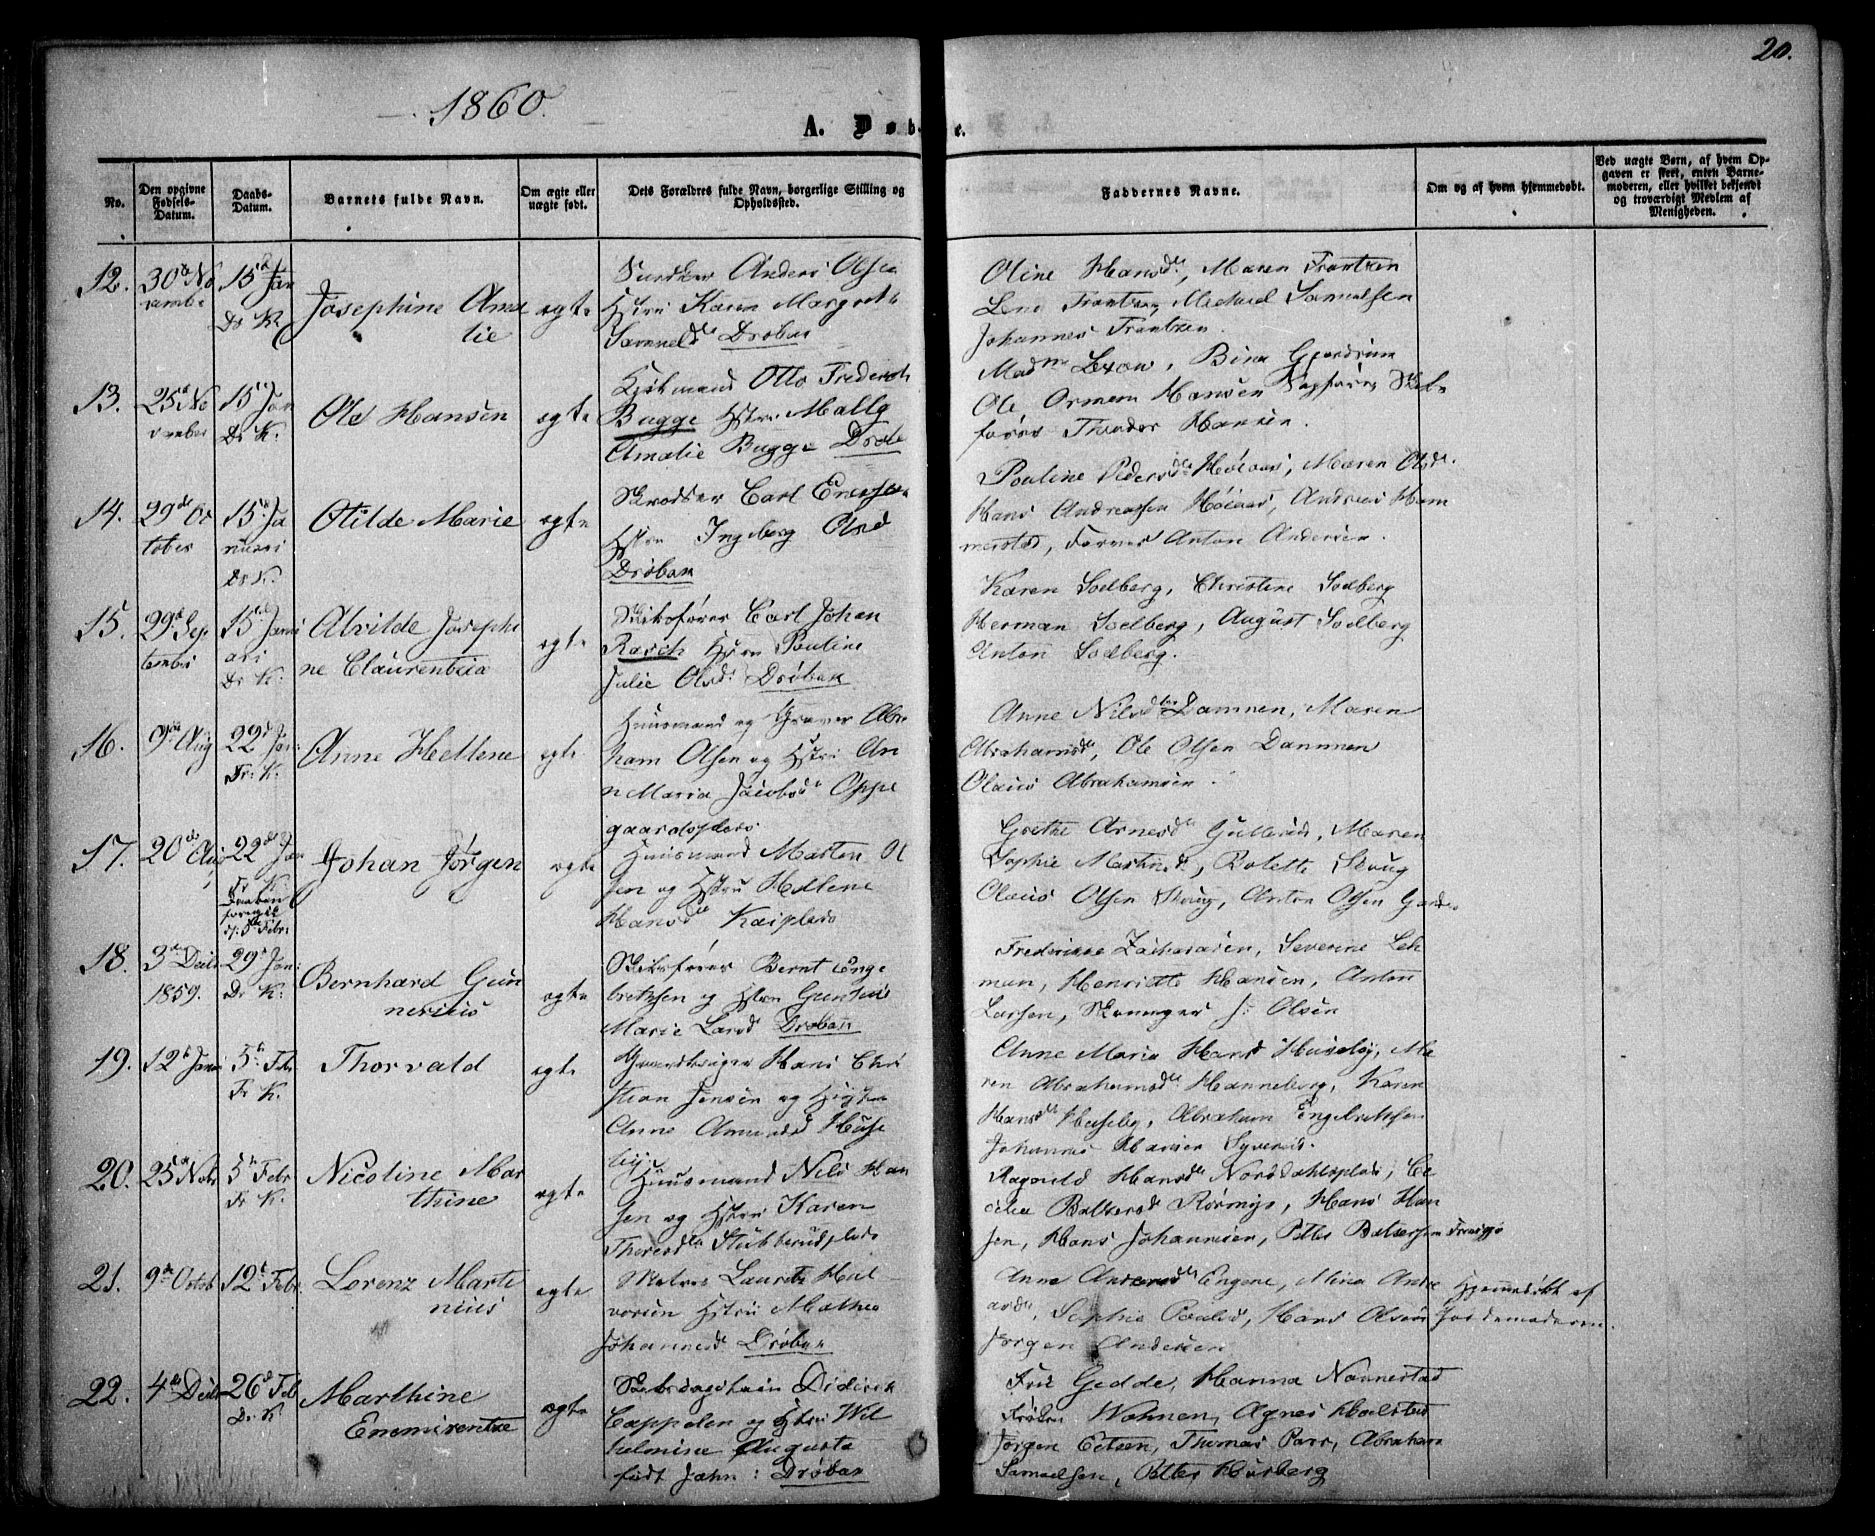 20.
1860.
A. Døbte.
No.
Den opgivne Fødsels-Datum.
Daabs-Datum.
Barnets fulde Navn.
Om ægte eller uægte født.
Dets Forældres fulde Navn, borgerlige Stilling og Opholdssted.
Faddernes Navne.
Om og af hvem hjemmedøbt.
Ved uægte Børn, af hvem Opgaven er skeet, enten Barnemoderen, eller hvilket bekjendt og troværdigt Medlem af Menigheden.
12.
30te November
15d Jan
Dr K.
Josephine Amalie
ægte
Anders Olsen
Hstru Karen Margrete
Samuelsd Drøbak
Oline Hansd, Maren Frantzen
Lene Frantzen, Michael Samuelsen
Johannes Frantzen.
13.
25d November
15d Jan
Dr K.
Ole Hansen
ægte
Kjøbmand Otto Frederik
Bugge Hstru Mally
Amalie Bugge Drøbak
Madm Lexow, Bina Gjerdrum
Ole Ormem Hansen
Theodor Hansen.
14.
29de October
15d Januari
Dr K.
Otilde Marie
ægte
Carl Ericksen
Hstru Ingeborg Olsd
Drøbak
Pouline Pedersd Høiaas, Maren Olsd.
Hans Andreassen Høiaas, Andreas Hammerstad, Anton Andersen.
15.
29d September
15d Januari
Dr K.
Alvilde Josephine Claurentzia
ægte
Skibsfører Carl Johan
Rasch Hstru Pouline
Julie Olsd: Drøbak
Karen Sodberg, Christine Sodberg
Herman Sodberg, August Sodberg
Anton Sodberg.
16.
9de Aug
22d Jan:
Fr: K.
Anne Hellene
ægte
Huusmand og Graver Abraham Olsen og Hstru Anne Maria Jacobsd Oppegaardsplads
Anne Nilsd Dammen, Maren
Abrahamsd, Ole Olsen Dammen
Olaus Abrahamsen.
17.
20de Aug
22de Jan
Fr K.
Daaben foregik d: 5te Febr:
Johan Jørgen
ægte
Huusmand Morten Olsen og Hstru Hellene
Hansd
Grethe Arnesd Gulleraas, Maren
Sophie Martinsd, Bolette Skoug
Olaus Olsen Skoug, Anton Olsen
18.
3de Decbr 1859.
29d Jan:
Dr K:
Bernhard Gunnerius
ægte
Skibsfører Bernt Engebretzsen og Hstru
Marie Larsd Drøbak
Frederikke Zachariasen, Severine Lehman, Henriette Hansen, Anton
Larsen, J: Olsen
19.
12te Januar
5te Feb.
Fr K.
Thorvald
ægte
Gaardbruger Hans Christian Jensen og Hustru
Anne Amundsd Huseby
Anne Maria Hansd Huseby, Maren Abrahamsd Hanneborg, Karen
Hansd Huseby, Abraham Engebretsen
Johannes Hansen
20.
25de Nobr
5te Febr
Fr K.
Nicoline Marthine
ægte
Huusmand Nils Hansen og Hstru Karen
Thoresd Stubberudplads
Ragnild Hansd Norddahlsplads,
Hans Hansen, Hans Johannesen, Petter
21.
9de Octob
12te Febr.
Lorenz Martinius
ægte
Matros Lauritz Halvorsen Hstru Mathea
Johannesd Drøbak
Anna Andersd Engene, Mina Andreasd, Sophie Paulsd, Hans Olsen
Jørgen Andersen
Hjemmedøbt af
Jordemoderen.
22.
4de Decbr
26d Feb
Dr. K
Marthine Enomirentze
ægte
Skibscapitain Diderik
Cappelen og Hstru Wilhelmine Augusta
født Jahn: Drøbak
Gedde, Hanna Nannestad
Frøken Wohnen, Agnes Halsted
Jørgen Eilsen, Thomas Parr, Abraham
Samuelsen, Petter Hursberg